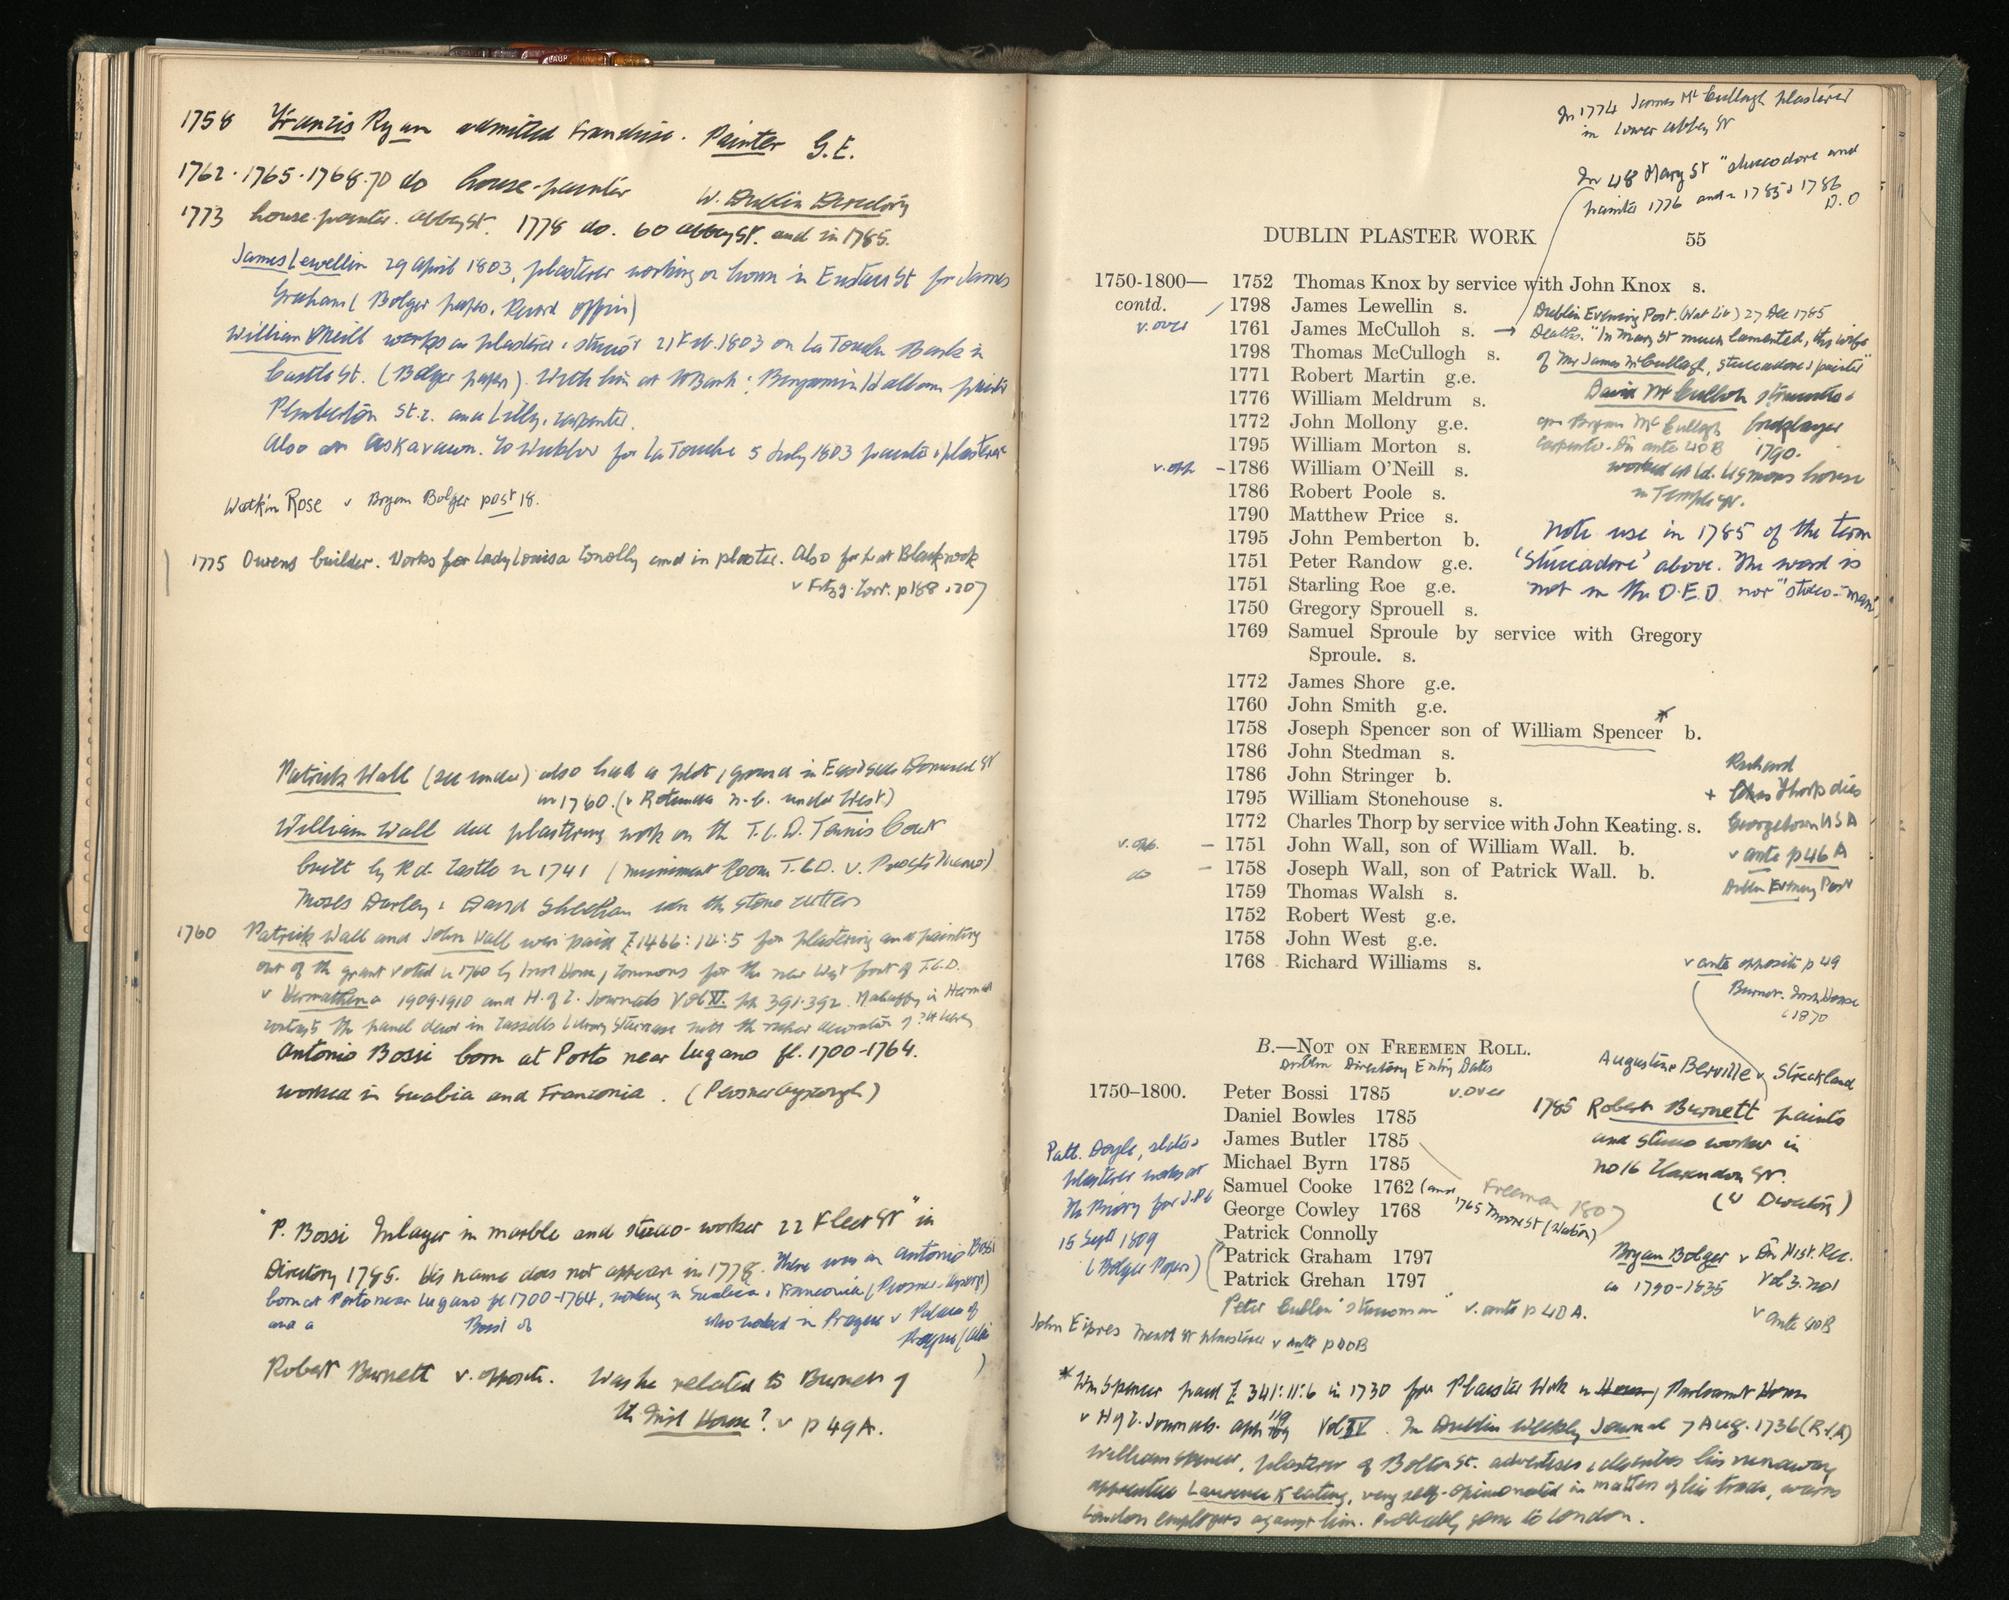 1758 Francis Ryan admitted Franchise. Painter G.E.
1762.1765.1768.70 do house-painter
W. Dublin Directory
1773 house painter. Abbey St. 1778 do. 60 Abbey St. and in 1785.
James Lewellin 29 April 1803, plasterer working on house in Eustace St for James
Graham (Bolger papers, Record Office)
William O'Neill works as plasterer & stucco 21 Feb. 1803 on La Touche Bank in
Castle St. (Bolger papers). With him at Bank: Benjamin Hallam painter
Pemberton St.c. and Lilly, carpenter.
Also on to Webber for La Touche 5 July 1803 painter & plasterer
Watkin Rose v Bryan Bolger post 18.
1775 Owens builder. Works for Lady Louisa Conolly and in plaster. Also for her at Blackrock
v Fitzg. Corr. p 188. 207
Patrick Wall (see under) also had a plot of ground in East side Dominick St
in 1760. (v Rotunda n.b. under West)
William Wall did plastering work on the T.C.D. Tennis Court
built by Rd. Castle in 1741 (Muniment Room T.C.D. v.
Moses Darley & David Sheehan were the stone cutters
1760 Patrick Wall and John Wall were paid £1466:14:5 for plastering and painting
out of the grant voted in 1760 by Irish House of Commons for the new West front of T.C.D.
v Hermathena 1909-1910 and H. of C. Journals Vol XI. pp 391-392. Mahaffy in Hermath
the panel decor in Cassells Library Staircase
Antonio Bossi born at Porto near Lugano fl. 1700-1764.
worked in Suabia and Franconia. (Pevsner
"P. Bossi Inlayer in marble and stucco-worker 22 Fleet St" in
Directory 1785. His name does not appear in 1778. There was an Antonio Bossi
born at Porto near Lugano fl 1700-1764, working in Suabia & Franconia (Pevsner
and a Bossi who worked in Prague v Palaces of
Prague
Robert Burnett v. opposite. Was he related to Burnet of
the Irish House? v p 49A.
In 1774 James McCullagh plasterer
in Lower Abbey St
In 48 Mary St "stuccodore and
painter 1776 and in 1785 & 1786
D.D
DUBLIN PLASTER WORK 55
1750-1800— 1752 Thomas Knox by service with John Knox s.
contd. 1798 James Lewellin s.
v. over 1761 James McCulloh s. →
1798 Thomas McCullogh s.
1771 Robert Martin g.e.
1776 William Meldrum s.
1772 John Mollony g.e.
1795 William Morton s.
v. opp. – 1786 William O'Neill s.
1786 Robert Poole s.
1790 Matthew Price s.
1795 John Pemberton b.
1751 Peter Randow g.e.
1751 Starling Roe g.e.
1750 Gregory Sprouell s.
1769 Samuel Sproule by service with Gregory
Sproule. s.
1772 James Shore g.e.
1760 John Smith g.e.
1758 Joseph Spencer son of William Spencer* b.
1786 John Stedman s.
1786 John Stringer b.
1795 William Stonehouse s.
1772 Charles Thorp by service with John Keating. s.
v. opp. – 1751 John Wall, son of William Wall. b.
do – 1758 Joseph Wall, son of Patrick Wall. b.
1759 Thomas Walsh s.
1752 Robert West g.e.
1758 John West g.e.
1768 Richard Williams s.
Dublin Evening Post. (Nat Lib) 27 Dec 1785
Deaths. "In Mary St much lamented, the wife
of Mr James McCullagh, stuccadore & painter"
David McCulloh
Bryan McCullagh bricklayer
carpenter. ante 40B 1790.
worked at Ld. Lismore's house
in Temple St.
Note use in 1785 of the term
'Stuccadore' above. The word is
not in the O.E.D. nor "stuco-man"
Richard
+ Chas Thorp dies
Georgetown USA
v ante p46A
Dublin Evening Post
v ante opposite p 49
Burnet. Irish House
c 1870
B.—NOT ON FREEMEN ROLL.
Dublin Directory Entry Dates
1750–1800. Peter Bossi 1785 v. over
Daniel Bowles 1785
James Butler 1785
Michael Byrn 1785
Samuel Cooke 1762 (and 1765 Moore St
George Cowley 1768
Patrick Connolly
Patrick Graham 1797
Patrick Grehan 1797
Freeman 1807
Peter Cullin "stuccoman" v. ante p 40A.
Augustine Berville v Strickland
1785 Robert Burnett painter
and stucco worker in
No 16 Clarendon St.
(v Directory)
Bryan Bolger v Dn Hist. Rec.
in 1790-1835 Vol 3. No 1
v ante 40B
Patt. Doyle, slater &
plasterer works at
the Priory for J.P.C
15 Sept 1809
(Bolger Papers)
John Eipres plasterer v ante p 40B
* Wm Spencer paid £341:11:6 in 1730 for Plaister Work in House of Parliament House
v H of C. Journals. App 119 Vol IV. In Dublin Weekly Journal 7 Aug. 1736 (R.I.A)
William Spencer, plasterer of Bolton St. advertises & describes his runaway
apprentice Lawrence Keating, very self-opinionated in matters of his trade, warns
London employers against him. Probably gone to London.